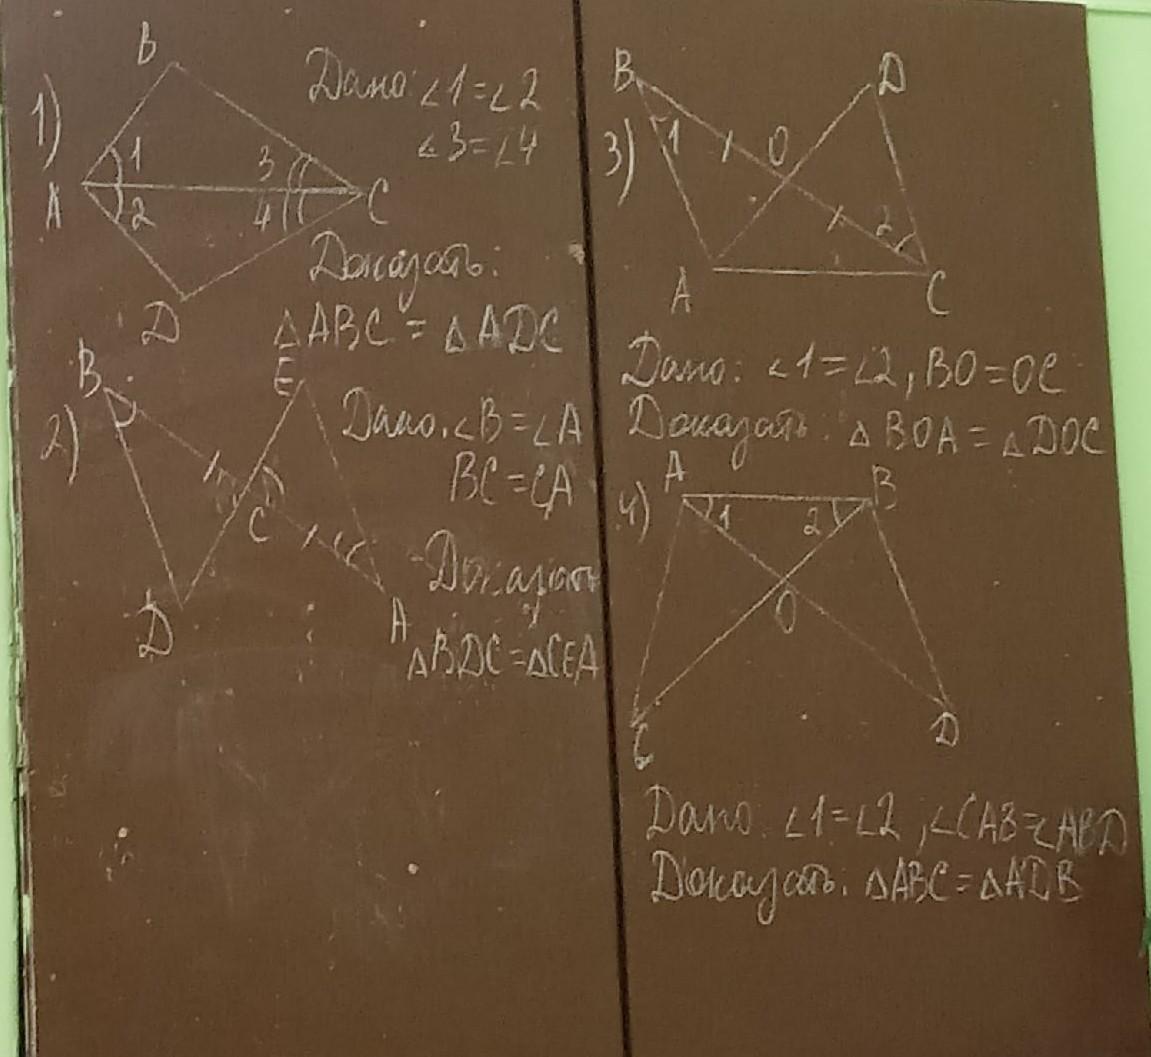 1)
B
A
1
2
3
4
C
D
Дано: ∠1=∠2
∠3=∠4
Доказать:
△ABC = △ADC
2)
B
E
C
D
A
Дано: ∠B=∠A
BC=CA
Доказать
△BDC=△CEA
3)
B
D
1
O
2
A
C
Дано: ∠1=∠2, BO=OC
Доказать: △BOA=△DOC
4)
A
B
1
2
O
C
D
Дано: ∠1=∠2, ∠CAB=∠ABD
Доказать: △ABC=△ADB